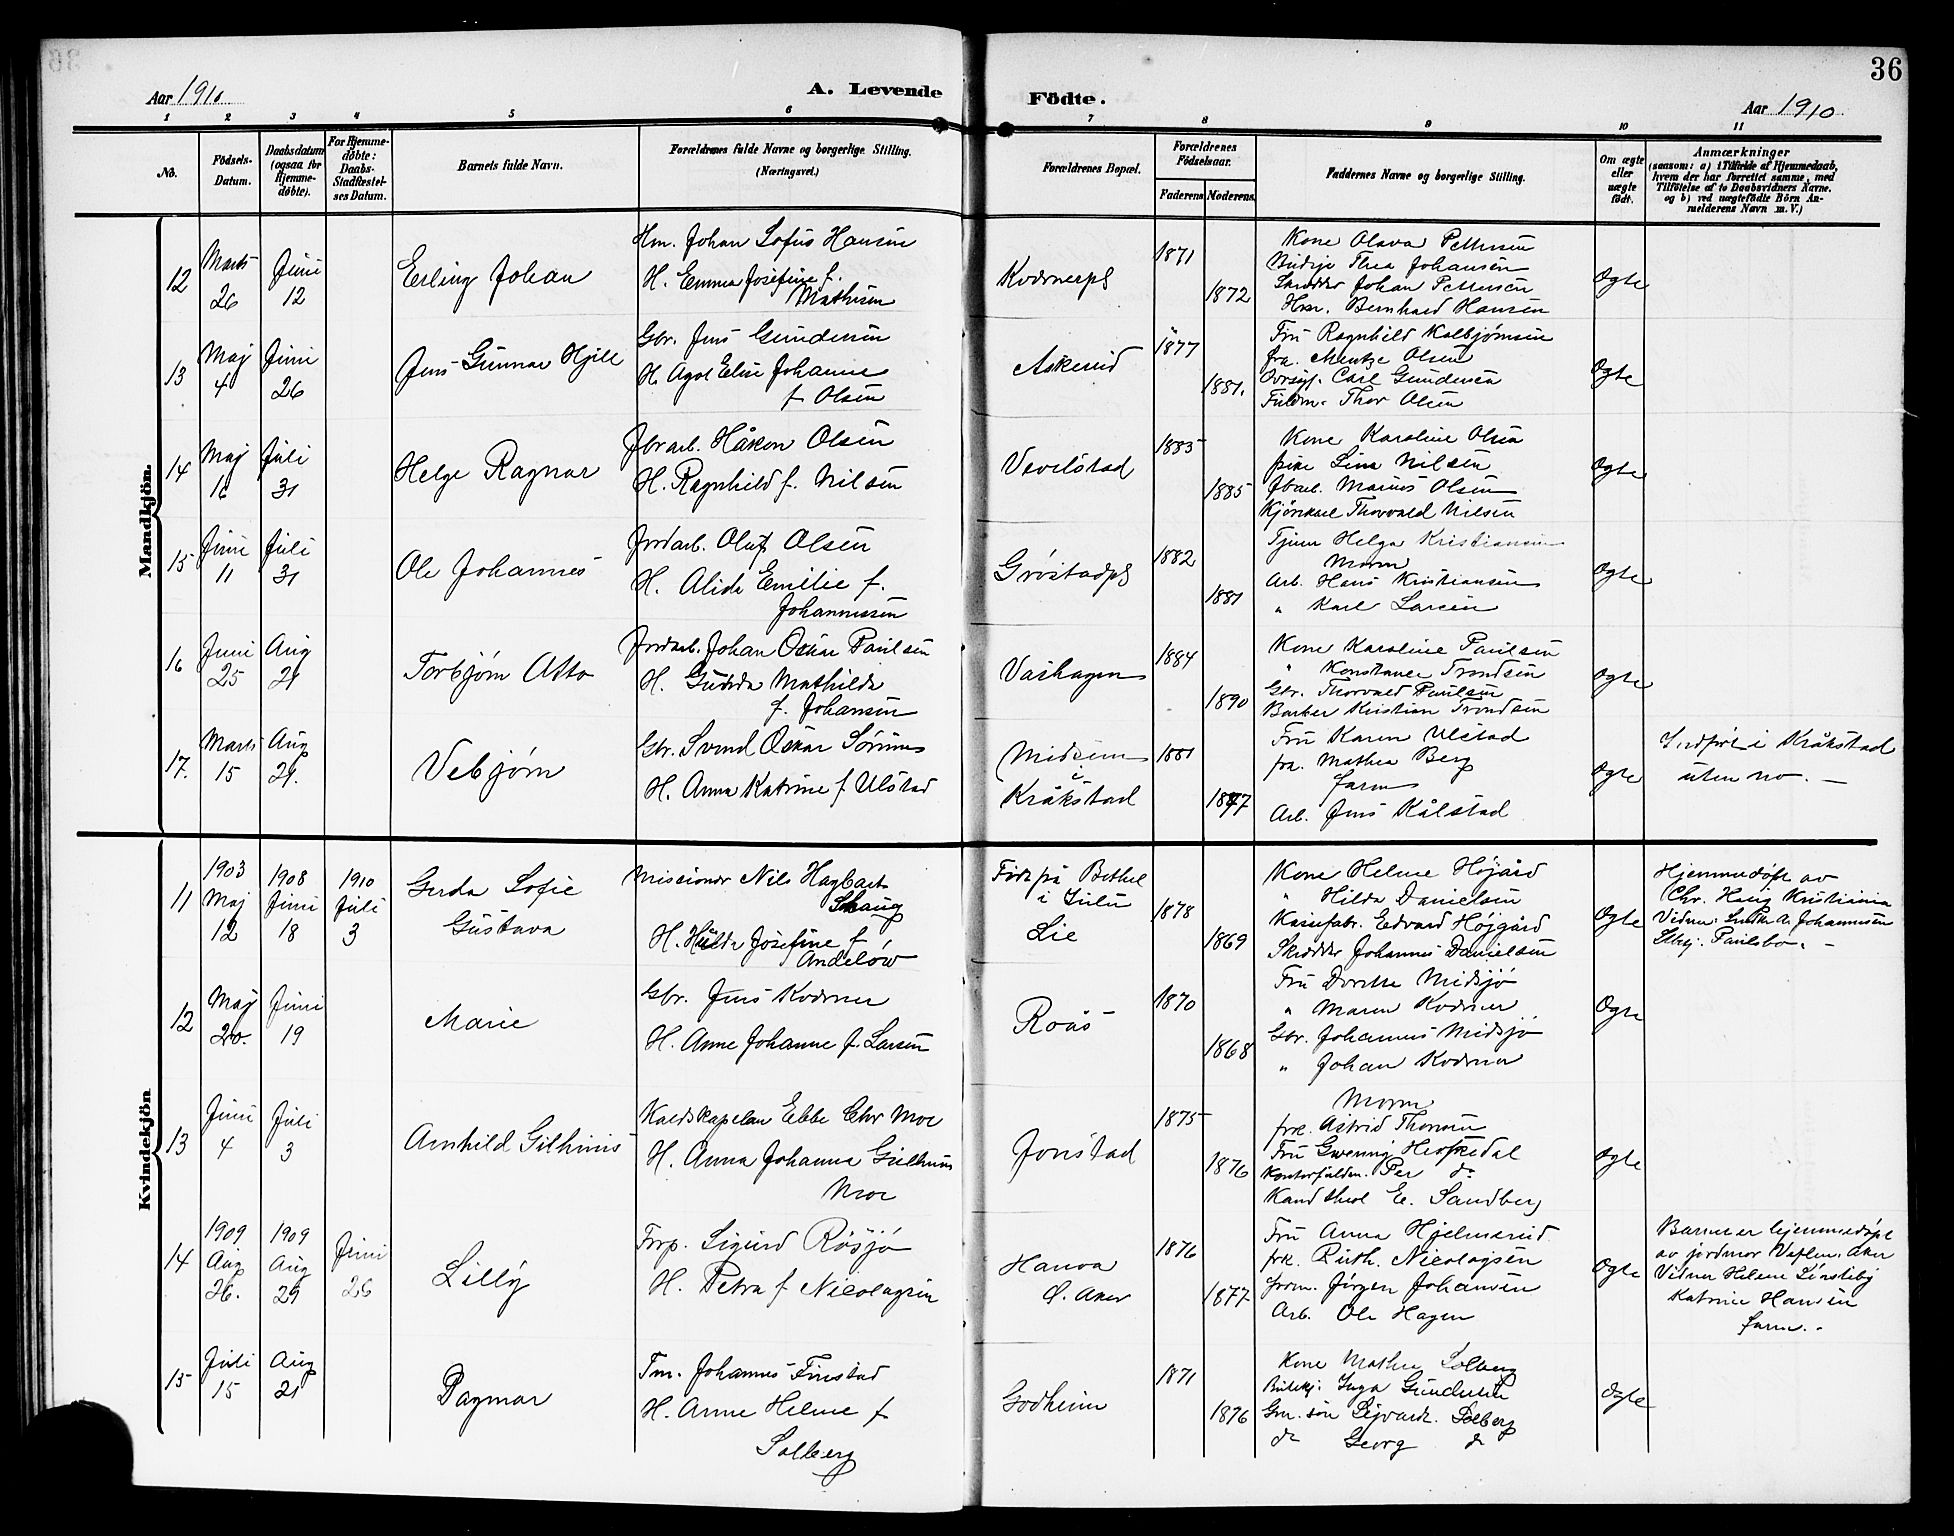 36
Aar 1910
A. Levende
Födte.
Aar 1910
1 2 3 4 5 6 7 8 9 10 11
No.
Födsels-Datum.
Daabsdatum (ogsaa for Hjemme-døbte).
For Hjemme-døbte: Daabs-Stadfæstel-ses Datum.
Barnets fulde Navn.
Forældrenes fulde Navne og borgerlige Stilling. (Næringsvei.)
Forældrenes Bopæl.
Forældrenes Födselsaar.
Faderens Moderens
Faddernes Navne og borgerlige Stilling.
Om ægte eller uægte födt.
Anmærkninger
(saasom: a) i Tilfælde af Hjemmedaab, hvem der har forrettet samme, med Tilföielse af to Daabsvidners Navne. og b) ved uægtefödte Börn An-melderens Navn m. V.)
Mandkjön.
12
Marts 26
Juni 12
Erling Johan
Hm. Johan Sofus Hansen
H. Emma Josefine f. Mathisen
1871
1872
Kone Olava Pettersen
Budeje Thea Johansen
Skrædder Johan Pettersen
Hm. Bernhard Hansen
Ogte
13
Maj 4
Juni 26
Jens Gunnar Hjell
Gbr. Jens Gundersen
H. Agot Elise Johanne
f Olsen
Askerud
1877
1881.
Fru Ragnhild Kolbjørnsen
frk. Mentze Olsen
Carl Gundersen
Fuldm. Thor Olsen
Ogte
14
Maj 16
Juli 31
Helge Ragnar
Jbrarb. Håkon Olsen
H. Ragnhild f. Nilsen
Vevelstad
1883
1885
Kone Karoline Olsen
pike Lina Nilsen
Jbarb. Marius Olsen
Kjørekarl Thorvald Nilsen
Ogte
15
Juni 11
Juli 31
Ole Johannes
Jordarb. Oluf Olsen
H. Alide Emilie f.
Johannessen
Grøstadpl
1882
1881
Tjener Helga Kristiansen
Moren
Arb. Hans Kristiansen
" Karl Larsen
Ogte
16
Juni 25
Aug 21
Torbjørn Otto
Jordarb. Johan Oskar Paulsen
H. Gudda Mathilda
f. Johansen
Vashagen
1884
1890
Kone Karoline Paulsen
" Konstance Trondsen
Gbr. Thorvald Paulsen
Banker Kristian Trondsen
Ogte
17.
Marts 15
Aug 21.
Vebjørn
Gbr. Svend Oskar Sørum
H. Anna Katrine f Ulstad
Midsem
i
Kråkstad
1881
1877
Fru Karen Ulstad
frk. Mathea Berg
faren
Arb. Jens Kålstad
Ogte
Indført i Kråkstad
uten no. —
Kvindekjön
11
1903 Maj 12
1908 Juni 18
1910 Juli 3
Gerda Sofie
Gustava
Missionær Nils Hagbart
Skaug
H. Hulda Josefine f
Andelöw
Født på Bethel
i Zulu
Lie
1878
1869
Kone Helene Højård
" Hilda Danielsen
Kassefabr. Edvard Højgård
Skrædder Johannes Danielsen
Ogte
Hjemmedøpt av
Chr. Haug Kristiania
Johannesen
Paulsbo. —
12
Maj 20.
Juni 19
Marie
Gbr. Jens Kodrner
H. Anne Johanne f. Larsen
Roås
1870
1868
Fru Dorthe Midsjø
" Maren Kodrner
Gbr. Johannes Midsjø
" Johan Kodrner
Ogte
13
Juni 4
Juli 3
Arnhild Gilhuus
Kaldskapelan Ebbe Chr Moe
H. Anna Johanna Gilhuus
Moe
Jonstad
1875
1876
Moren
frk. Astrid Thomsen
Fru Gwening Herskedal
Kontorfuldm. Per do
Kand theol E. Sandberg
Ogte
14
1909 Aug 26.
1909 Aug 29
Juni 26
Lilly
Forp. Sigurd Røsjø
H. Petra f Nicolaysen
Ø. Aker
1876
1877
Fru Anna Hjelmerud
frk. Ruth. Nicolajsen
form. Jørgen Johansen
Arb. Ole Hagen
Ogte
Barnet er hjemmedøpt
av jordmor Aker
Vidner Helene
Katrine Hansen
faren. -
15
Juli 15
Aug 21
Dagmar
Tm. Johannes Finstad
H. Anne Helene f
Solberg
Godheim
1871
1876
Kone Mathea Solberg
Butikj. Inga Gundersen
Gm. søn Sigvart. Solberg
do Georg do
Ogte